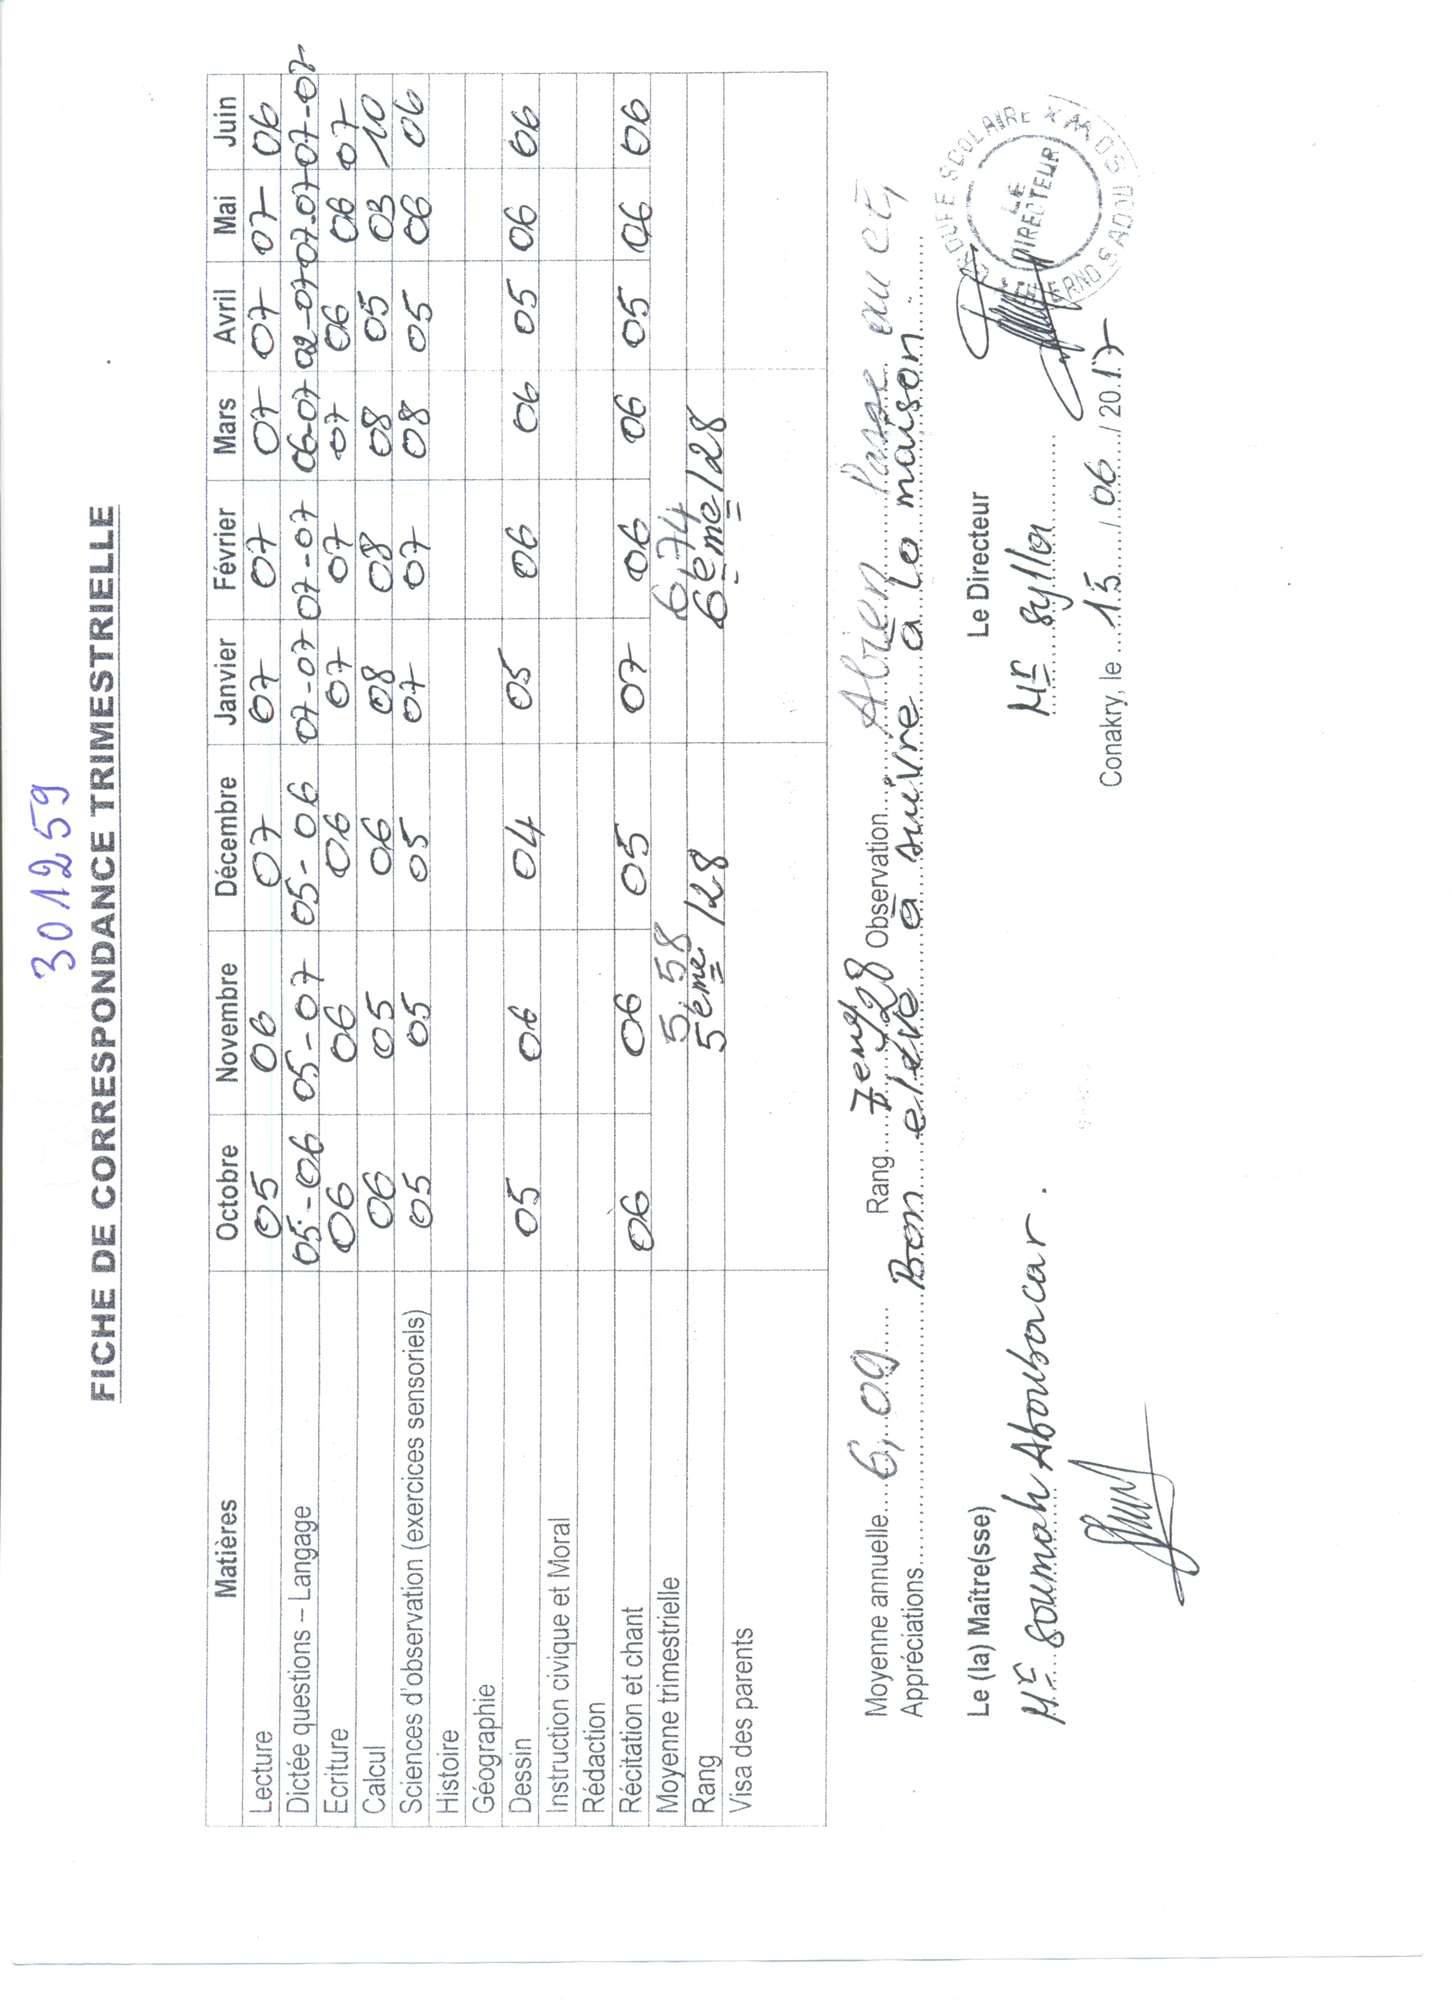 301259
FICHE DE CORRESPONDANCE TRIMESTRIELLE
Matières Octobre Novembre Décembre Janvier Février Mars Avril Mai Juin
Lecture 05 06 07 07 07 07 07 07 06
Dictée questions – Langage 05-06 05-07 05-06 07-07 07-07 06-07 02-07 07-07 07-07
Ecriture 06 06 06 07 07 07 06 06 07
Calcul 06 05 06 08 08 08 05 03 10
Sciences d'observation (exercices sensoriels) 05 05 05 07 07 08 05 06 06
Histoire
Géographie
Dessin 05 06 04 05 06 06 05 06 06
Instruction civique et Moral
Rédaction
Récitation et chant 06 06 05 07 06 06 05 06 06
Moyenne trimestrielle 5,58 6,74
Rang 5ème/28 6ème/28
Visa des parents
Moyenne annuelle 6,09 Rang 7eme/28 Observation Passe en
Appréciations Bon elève a suivre à la maison
Le (la) Maître(sse) Le Directeur
Mr Soumah Aboubacar. Mr Sylla
Conakry, le 15 / 06 / 2017
GROUPE SCOLAIRE
LE DIRECTEUR